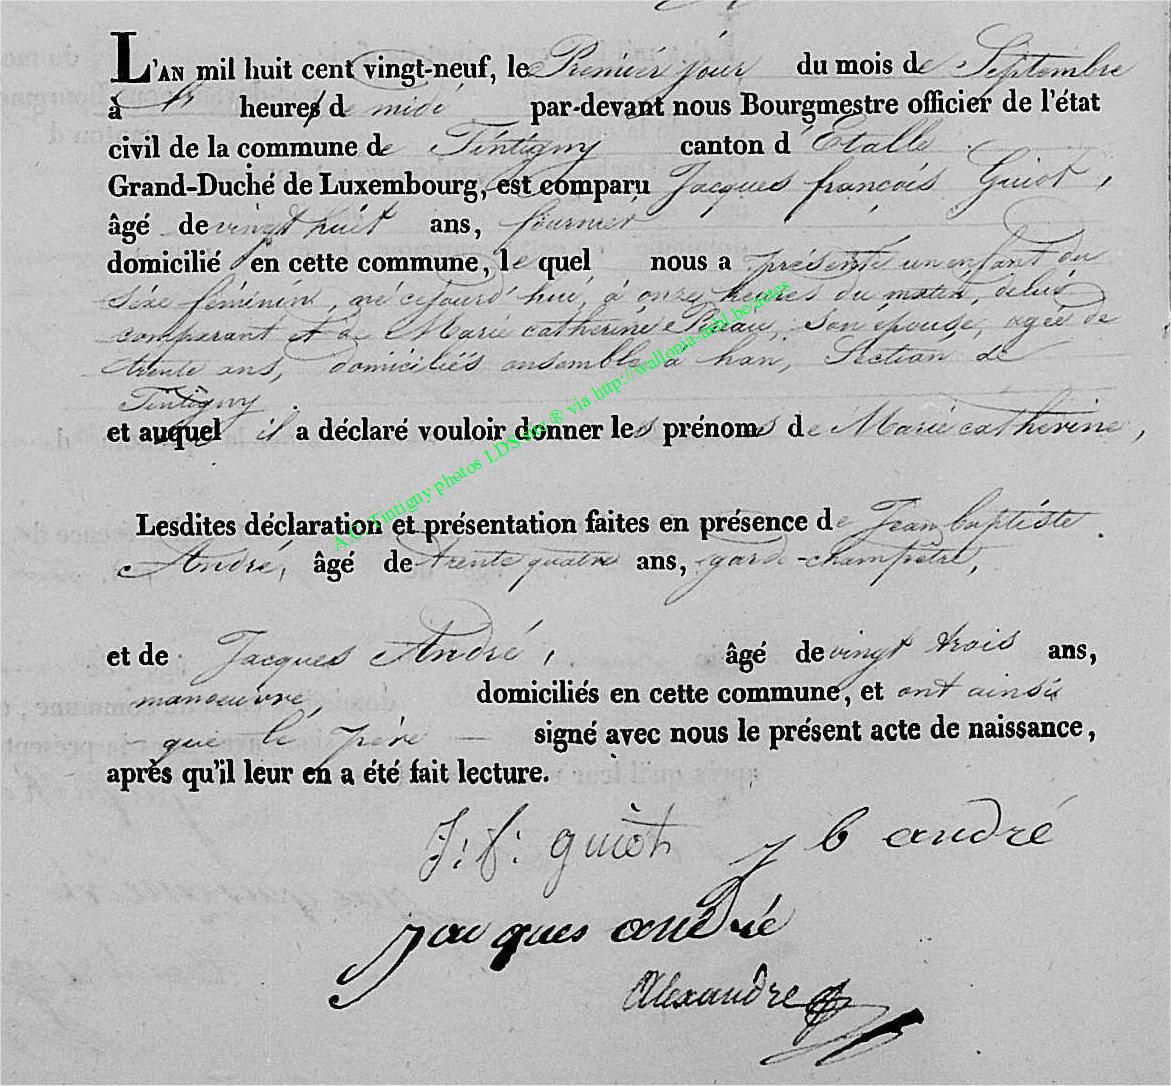 L'AN mil huit cent vingt-neuf, le Premier jour du mois de Septembre
à heures de midi par-devant nous Bourgmestre officier de l'état
civil de la commune de Tintigny canton d'Etalle
Grand-Duché de Luxembourg, est comparu Jacques françois Guiot,
âgé de vingt huit ans, fournier
domicilié en cette commune, lequel nous a présenté un enfant du
séxe féminin, né cejourd'hui, à onze heures du matin, de lui
comparant et de Marie catherine son épouse, agée de
trente ans, domiciliés ensemble à han, Section de
Tintigny.
et auquel il a déclaré vouloir donner les prénoms de Marie catherine,
Lesdites déclaration et présentation faites en présence de Jean baptiste
André, âgé de trente quatre ans, garde-champêtre,
et de Jacques André, âgé de vingt trois ans,
manoeuvre, domiciliés en cette commune, et ont ainsi
que le père — signé avec nous le présent acte de naissance,
après qu'il leur en a été fait lecture.
J: f: guiot j b andré
jacques andré
Alexandre
A.C. Tintigny photos LDS via http://wallonia-asbl.be/actes